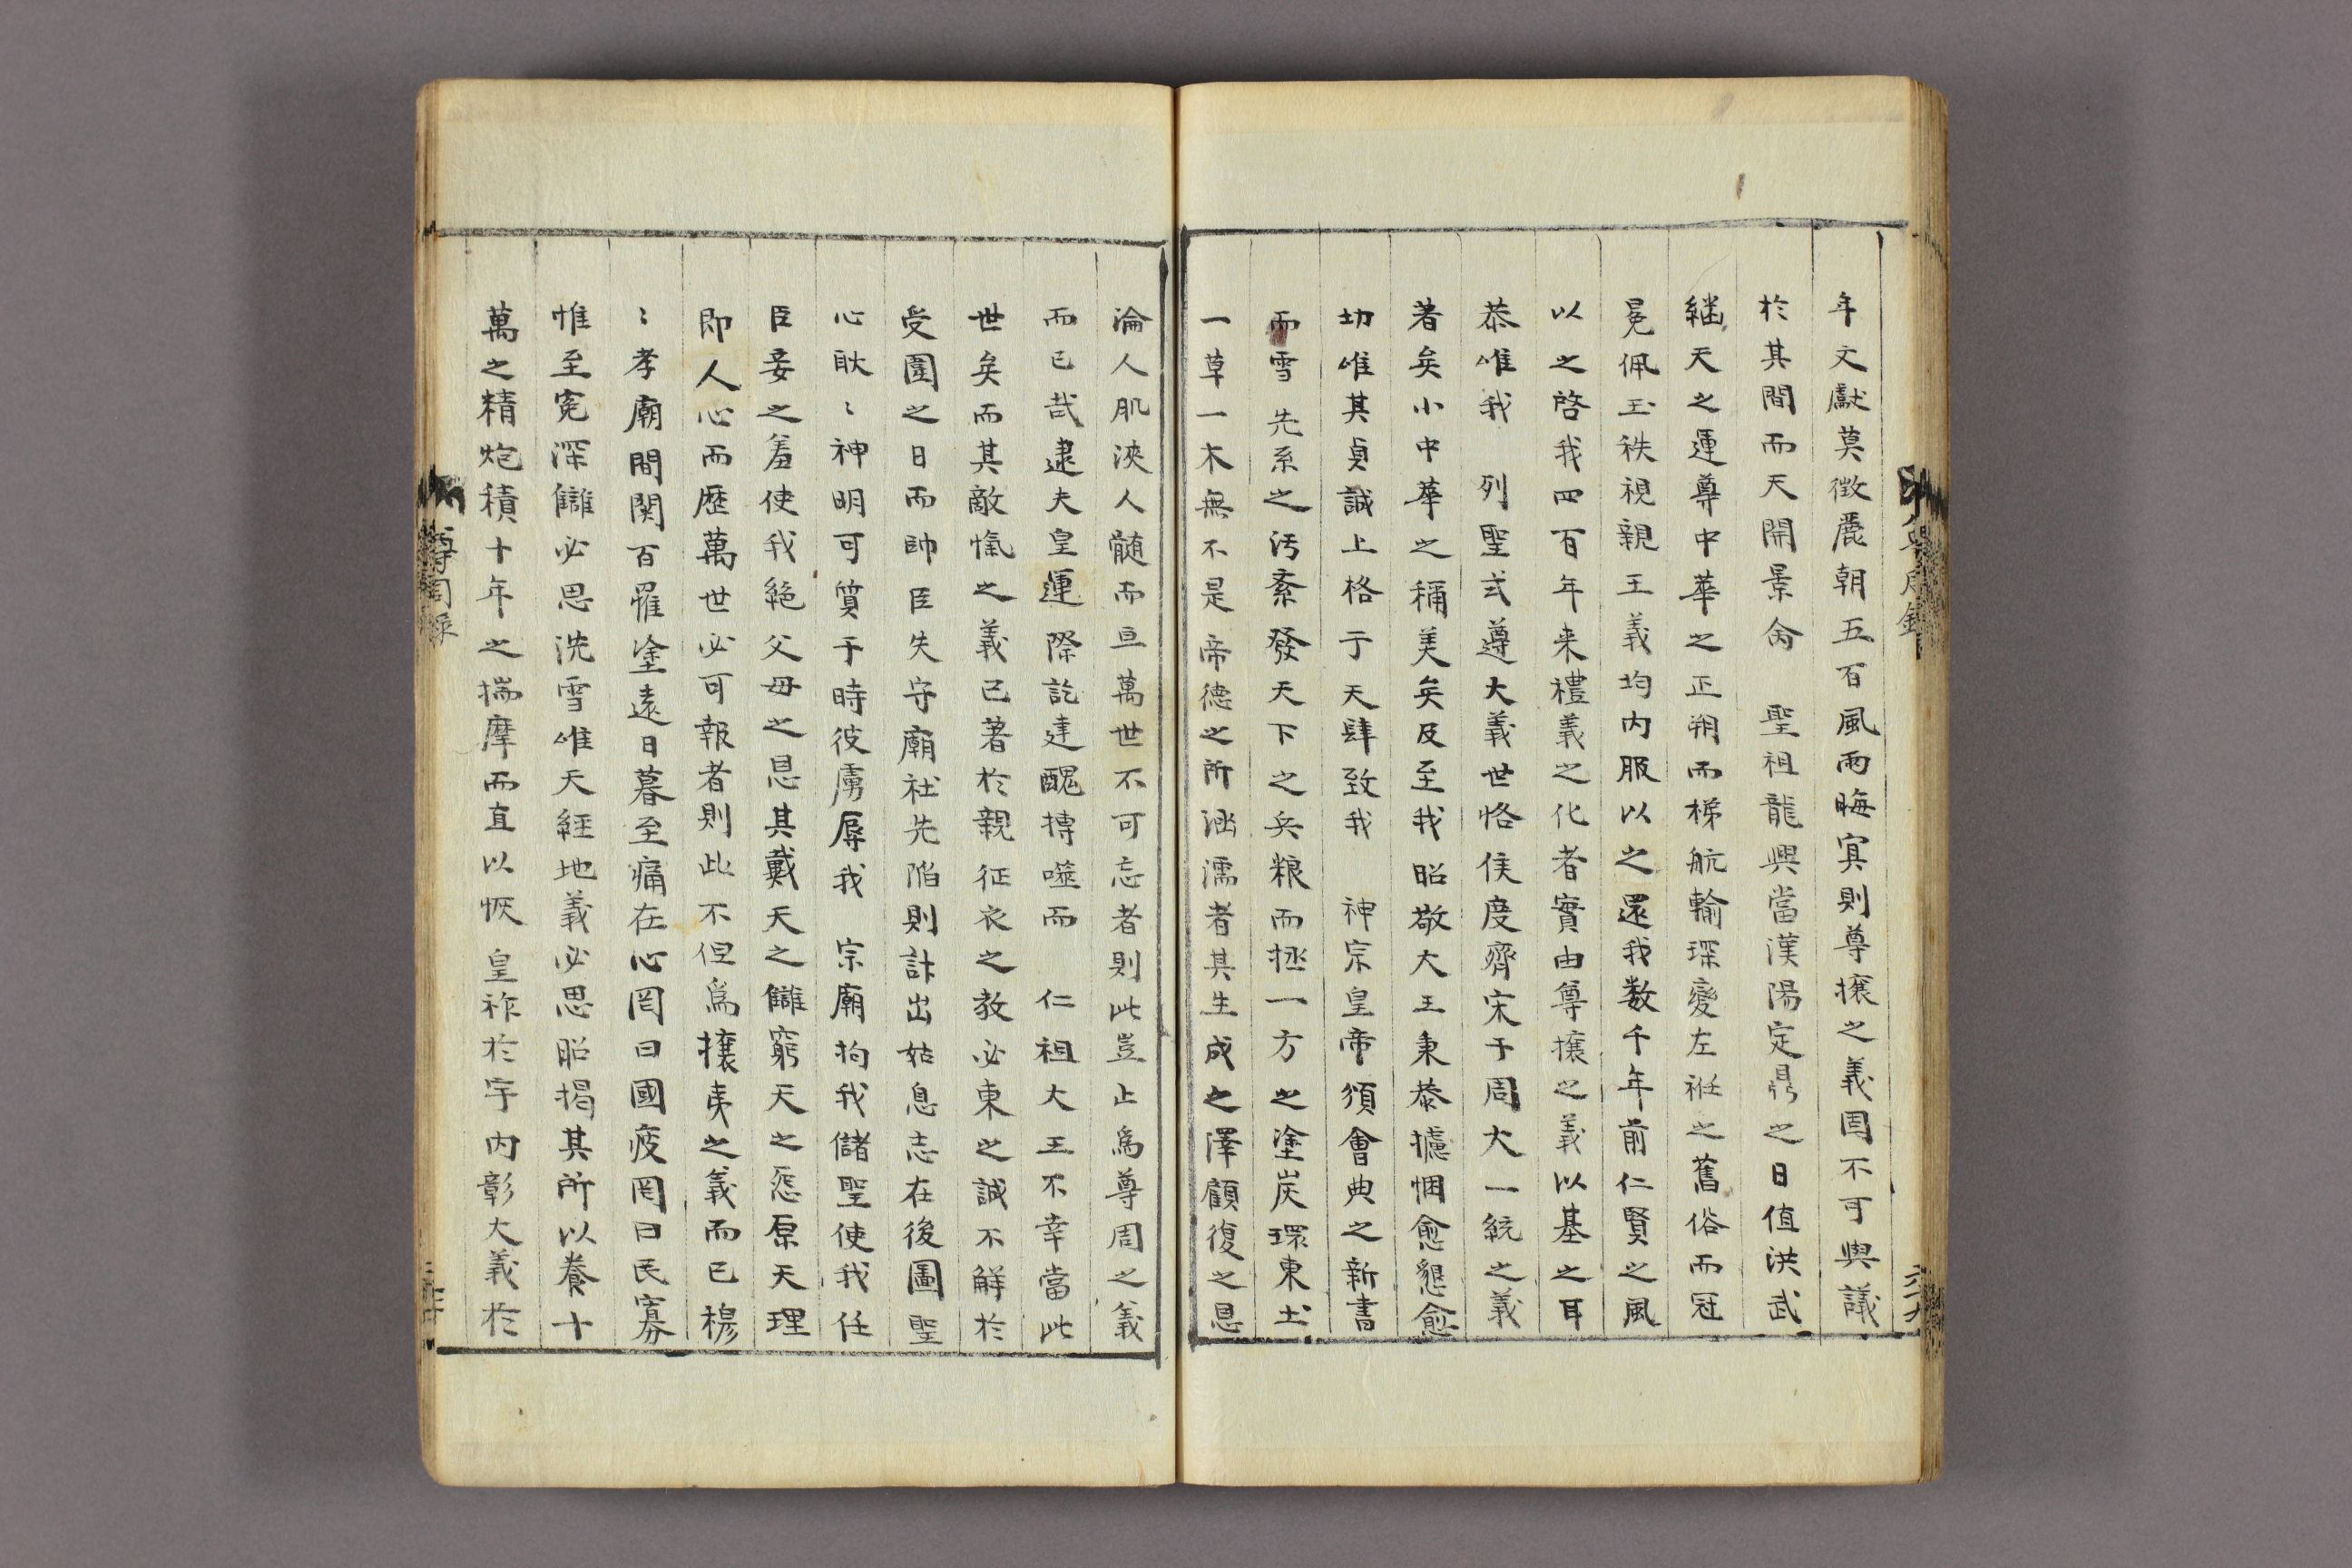 年文獻莫徵麗朝五百風雨晦冥則尊攘之義固不可與議
於其間而天開景侖 聖祖龍興當漢陽定鼎之日值洪武
継天之運尊中華之正朔而梯航輸琛變左袵之舊俗而冠
冕佩玉秩視親王義均內服以之還我数千年前仁賢之風
以之啓我四百年来禮義之化者實由尊攘之義以基之耳
恭唯我 列聖式遵大義世恪侯度齊宋于周大一統之義
著矣小中華之稱美矣及至我 昭敬大王秉恭攄悃愈懇愈
切唯其貞誠上格于天肆致我 神宗皇帝須會典之新書
而雪 先系之汚紊發天下之兵粮而拯一方之塗炭環東土
一草一木無不是帝德之所涵濡者其生成之澤顧復之恩
淪人肌浹人髄而亘萬世不可忘者則此豈止爲尊周之義
而已哉逮夫皇運際訖建醜摶噬而 仁祖大王不幸當此
世矣而其敵愾之義已著於親征衣之教必東之誠不觧於
受圍之日而帥臣失守廟社先陷則計出姑息志在後圖聖
心耿〻神明可質于時彼虜辱我 宗廟拘我儲聖使我任
臣妾之羞使我絶父母之恩其戴天之讎窮天之怨原天理
即人心而歷萬世必可報者則此不但爲攘夷之義而已穆
〻孝廟間関百罹塗遠日暮至痛在心罔曰國疲罔曰民寡
惟至寃深讎必思洗雪唯天経地義必思昭揭其所以養十
萬之精炮積十年之揣摩而直以恢 皇祚於宇內彰大義於
尊周録